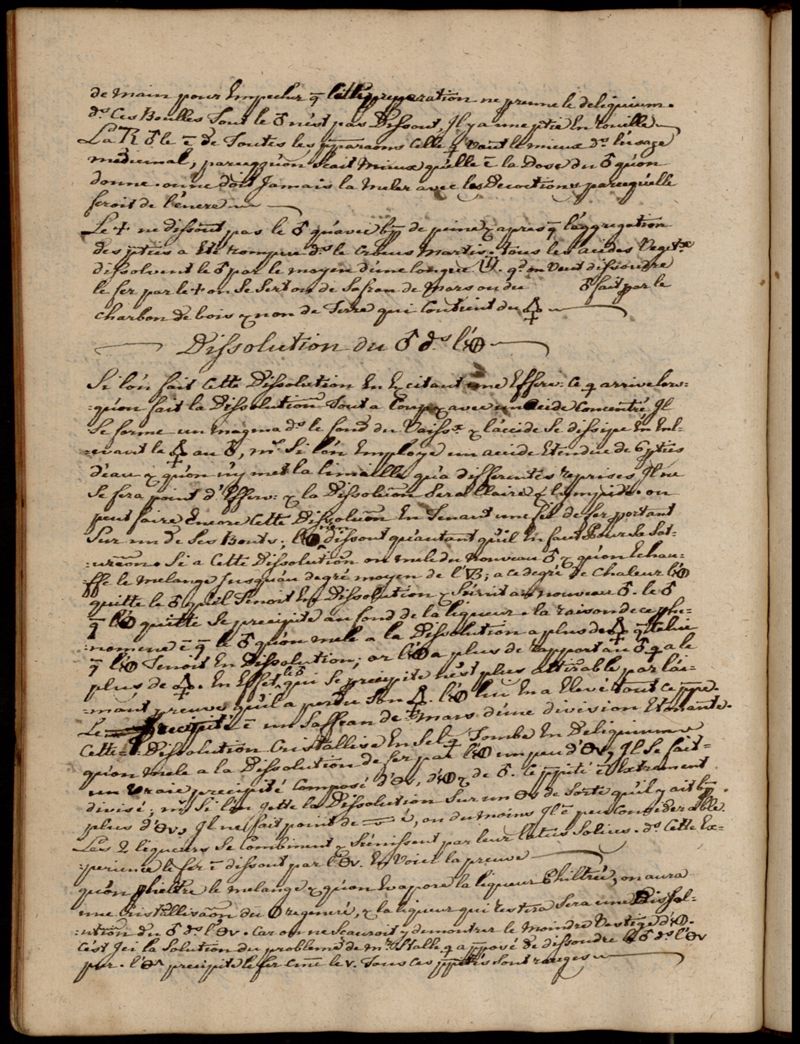 de main pour Empecher q̄ cette preparation ne prenne le deliquium.
ds Ces Boulles tout le ♂ n'est pas Dissout Il y a une ptie En rouille
La ♂ le ē de Toutes les pparaons Celle q̄ vaut le mieux ds l'usage
medicinal, parcequ'on scait Mieux qu'elle ē la Dose du ♂ qu'on
donne. on ne doit Jamais la meler avec les Decoctions parcequ'elle
feroit de l'encre
Le 🜊 ne dissout pas le ♂ qu'avec bp de peine & apres q̄ l'aggregation
des pties a Eté rompue ds le Crocus Martis. tous les acides Veget.x
dissolvent le ♂ par le moyen d'une longue . qd on Veut dissoudre
le fer par le + on se sert ou de Safran de Mars ou du ♂ fait par le
charbon de bois & non de Terre qui Contient du 🜍
Dissolution du ♂ ds l'🜖
Si l'on fait Cette Dissolution En Excitant une Efferv: Ce q̄ arrive lors-
-qu'on fait la Dissolution Tout a Coup & avec un acide Concentré, Il
Se forme un magma ds le fond du Vaiss.u & l'acide Se dissipe En En-
-levant le 🜍 au ♂, ms Si l'on Employe un acide Etendue de 6 pties
d'eau & qu'on n'y met la limaille qu'a differentes reprises, Il ne
Se fera point d'Efferv: & la Dissolution Sera Claire & lympide. on
peut faire Encore Cette Dissoluōn En Tenant une fil de fer portant
Sur un de Ses Bouts; l'🜖 dissout qu'autant qu'il En faut Pour Sa Sat-
-uraōn. Si a Cette Dissolution on mele du Nouveau ♂ & qu'on Echau-
-ffe le melange Jusqu'au degré moyen de l' ; a ce degré de Chaleur l'🜖
quitte le ♂ qu'il Tenoit En Dissolution & S'unit au nouveau ♂. le ♂
q̄ l'🜖 quitte Se precipite au fond de la liqueur. la raison de ce phe-
-nomene ē q̄ le ♂ qu'on mele a la Dissolution a plus de 🜍 q̄ celui
q̄ l'🜖 Tenoit En Dissolution; or l'🜖 a plus de rapport au ♂ q̄ a le
plus de 🜍. En Effet, le ♂ qui Se precipite n'est plus attirable par l'ai-
-mant preuve qu'il a perdu Son 🜍. l'🜖 lui En a Elevé tout
Le precipité ē un Saffran de mars d'une division Etonante.
Cette Dissolution Cristallise En Sel q̄ Tombe En Deliquium
qu'on mele a la Dissolution de fer par l'🜖 un peu d' , Il Se fait
un vraie precipité Composé d' , d'🜖 & de ♂. Ce ppité ē Extrement
divisé; ms Si l'on jette la Dissolution Sur un de Sorte qu'il y ait bp
plus d' , Il ne Se fait point de , ou du moins Il ē peu Considerable
Les 2 liqueurs Se Combinent & S'unissent par leur latus Salius. ds Cette Ex-
-perience le fer ē dissout par l' . En Voici la preuve
qu'on philtre le melange & qu'on Evapore la liqueur Philtrée, on aura
une Cristallisaōn du regeneré, & la liqueur qui restera Sera une Dissol-
-ution du ♂ ds l' . Car on ne Scauroit y demontrer le Moindre Vestige d'🜖.
C'est Ici la Solution du probleme de mr Stalh q̄ a pposé de dissoudre le ♂ ds l'
par. l' precipite le fer Tous Ces ppités sont rouges